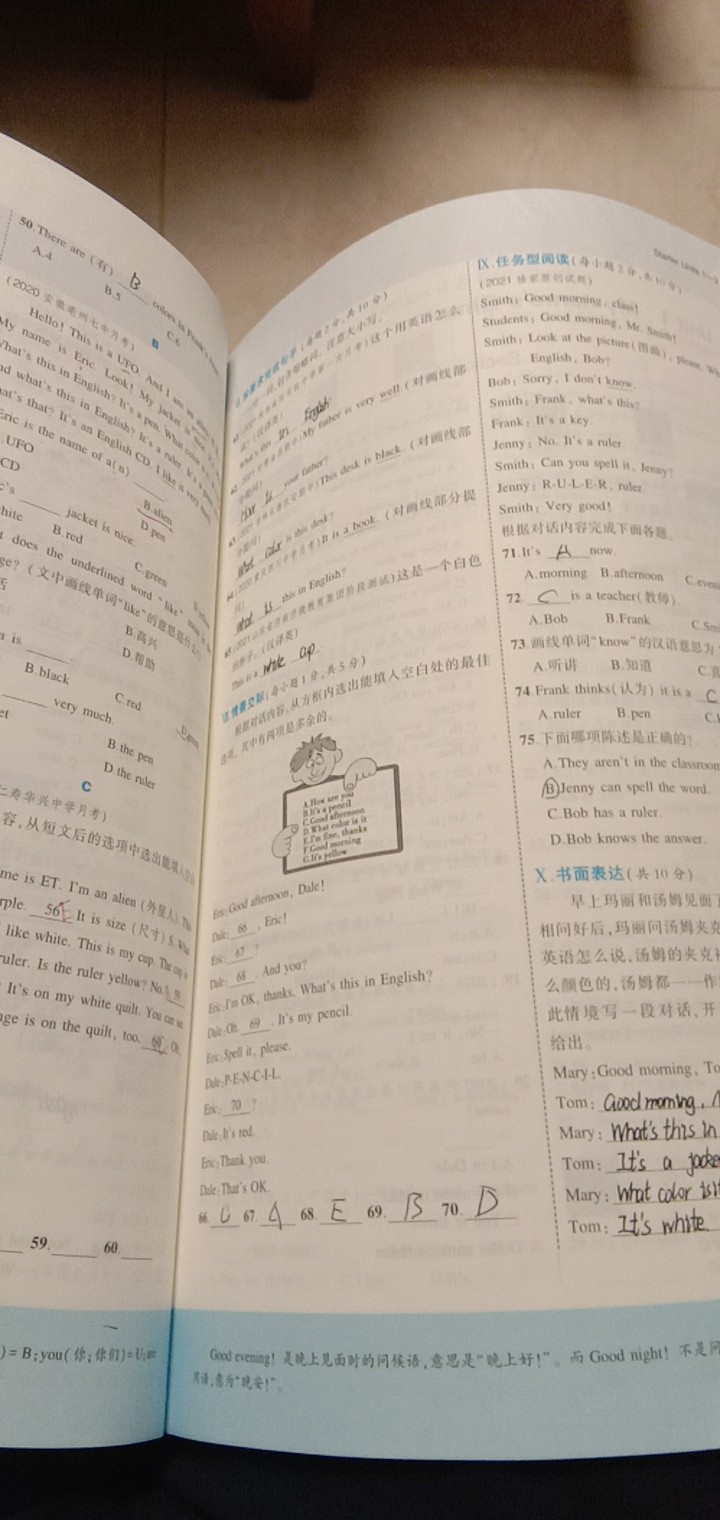 50.There are (有) B colors in Frank's
A.4 B.5 C.6
B
(2020 安徽亳州七中月考)
Hello! This is a UFO. And I am an alien
My name is Eric. Look! My jacket is
What's this in English? It's a pen. What color
nd what's this in English? It's a ruler. It's a
at's that? It's an English CD. I like a very
Eric is the name of a(n) ______.
.UFO B.alien
CD D.pen
's ______ jacket is nice.
hite B.red C.green
does the underlined word "like"
ge? (文中画线单词"like"的意思是什么
B.高兴
D.帮助
is ______.
B.black C.red D.green
______ very much.
et B.the pen
D.the ruler
C
仁寿华兴中学月考)
容,从短文后的选项中选出能填入空白
me is ET. I'm an alien (外星人). The
rple. 56 It is size (尺寸) S. What
like white. This is my cup. The cup is
ruler. Is the ruler yellow? No. 59
It's on my white quilt. You can see
ge is on the quilt, too. 60 Oh,
59.______ 60.______
)= B;you(你;你们)=U;are
Ⅶ.按要求完成句子(每题2分,共10分)
这个用英语怎么
说?(汉译英)
What's this in English?
My father is very well.(对画线部
分提问)
How is your father?
This desk is black.(对画线部
分提问)
What color is this desk?
It is a book.(对画线部分提
问)
What is this in English?
这是一个白色
的杯子。(汉译英)
This is a white cup.
Ⅷ.情景交际(每小题1分,共5分)
根据对话内容,从方框内选出能填入空白处的最佳
选项。其中有两项是多余的。
A.How are you
B.It's a pencil
C.Good afternoon
D.What color is it
E.I'm fine, thanks
F.Good morning
G.It's yellow
Eric:Good afternoon, Dale!
Dale: 66 , Eric!
Eric: 67 ?
Dale: 68 . And you?
Eric:I'm OK, thanks. What's this in English?
Dale:Oh, 69 . It's my pencil.
Eric:Spell it, please.
Dale:P-E-N-C-I-L.
Eric: 70 ?
Dale:It's red.
Eric:Thank you.
Dale:That's OK.
66. C 67. A 68. E 69. B 70. D
Good evening! 是晚上见面时的问候语,意思是"晚上好!"。而 Good night! 不是问
用语,意为"晚安!"。
Starter Units 1—3
Ⅸ.任务型阅读(每小题2分,共10分)
(2021 独家原创试题)
Smith: Good morning, class!
Students: Good morning, Mr. Smith!
Smith: Look at the picture(图画), please. Wh
English, Bob?
Bob: Sorry, I don't know.
Smith: Frank, what's this?
Frank: It's a key.
Jenny: No. It's a ruler.
Smith: Can you spell it, Jenny?
Jenny: R-U-L-E-R, ruler.
Smith: Very good!
根据对话内容完成下面各题。
71.It's A now.
A.morning B.afternoon C.eveni
72 C is a teacher(教师).
A.Bob B.Frank C.Smi
73.画线单词"know"的汉语意思为"
A.听讲 B.知道 C.
74.Frank thinks(认为) it is a C
A.ruler B.pen C.
75.下面哪项陈述是正确的?
A.They aren't in the classroom
B.Jenny can spell the word.
C.Bob has a ruler.
D.Bob knows the answer.
Ⅹ.书面表达(共 10 分)
早上玛丽和汤姆见面了
相问好后,玛丽问汤姆夹克
英语怎么说,汤姆的夹克
么颜色的,汤姆都一一作
此情境写一段对话,开
给出。
Mary:Good morning, To
Tom: Good morning,
Mary: What's this in
Tom: It's a jacke
Mary: What color is it
Tom: It's white